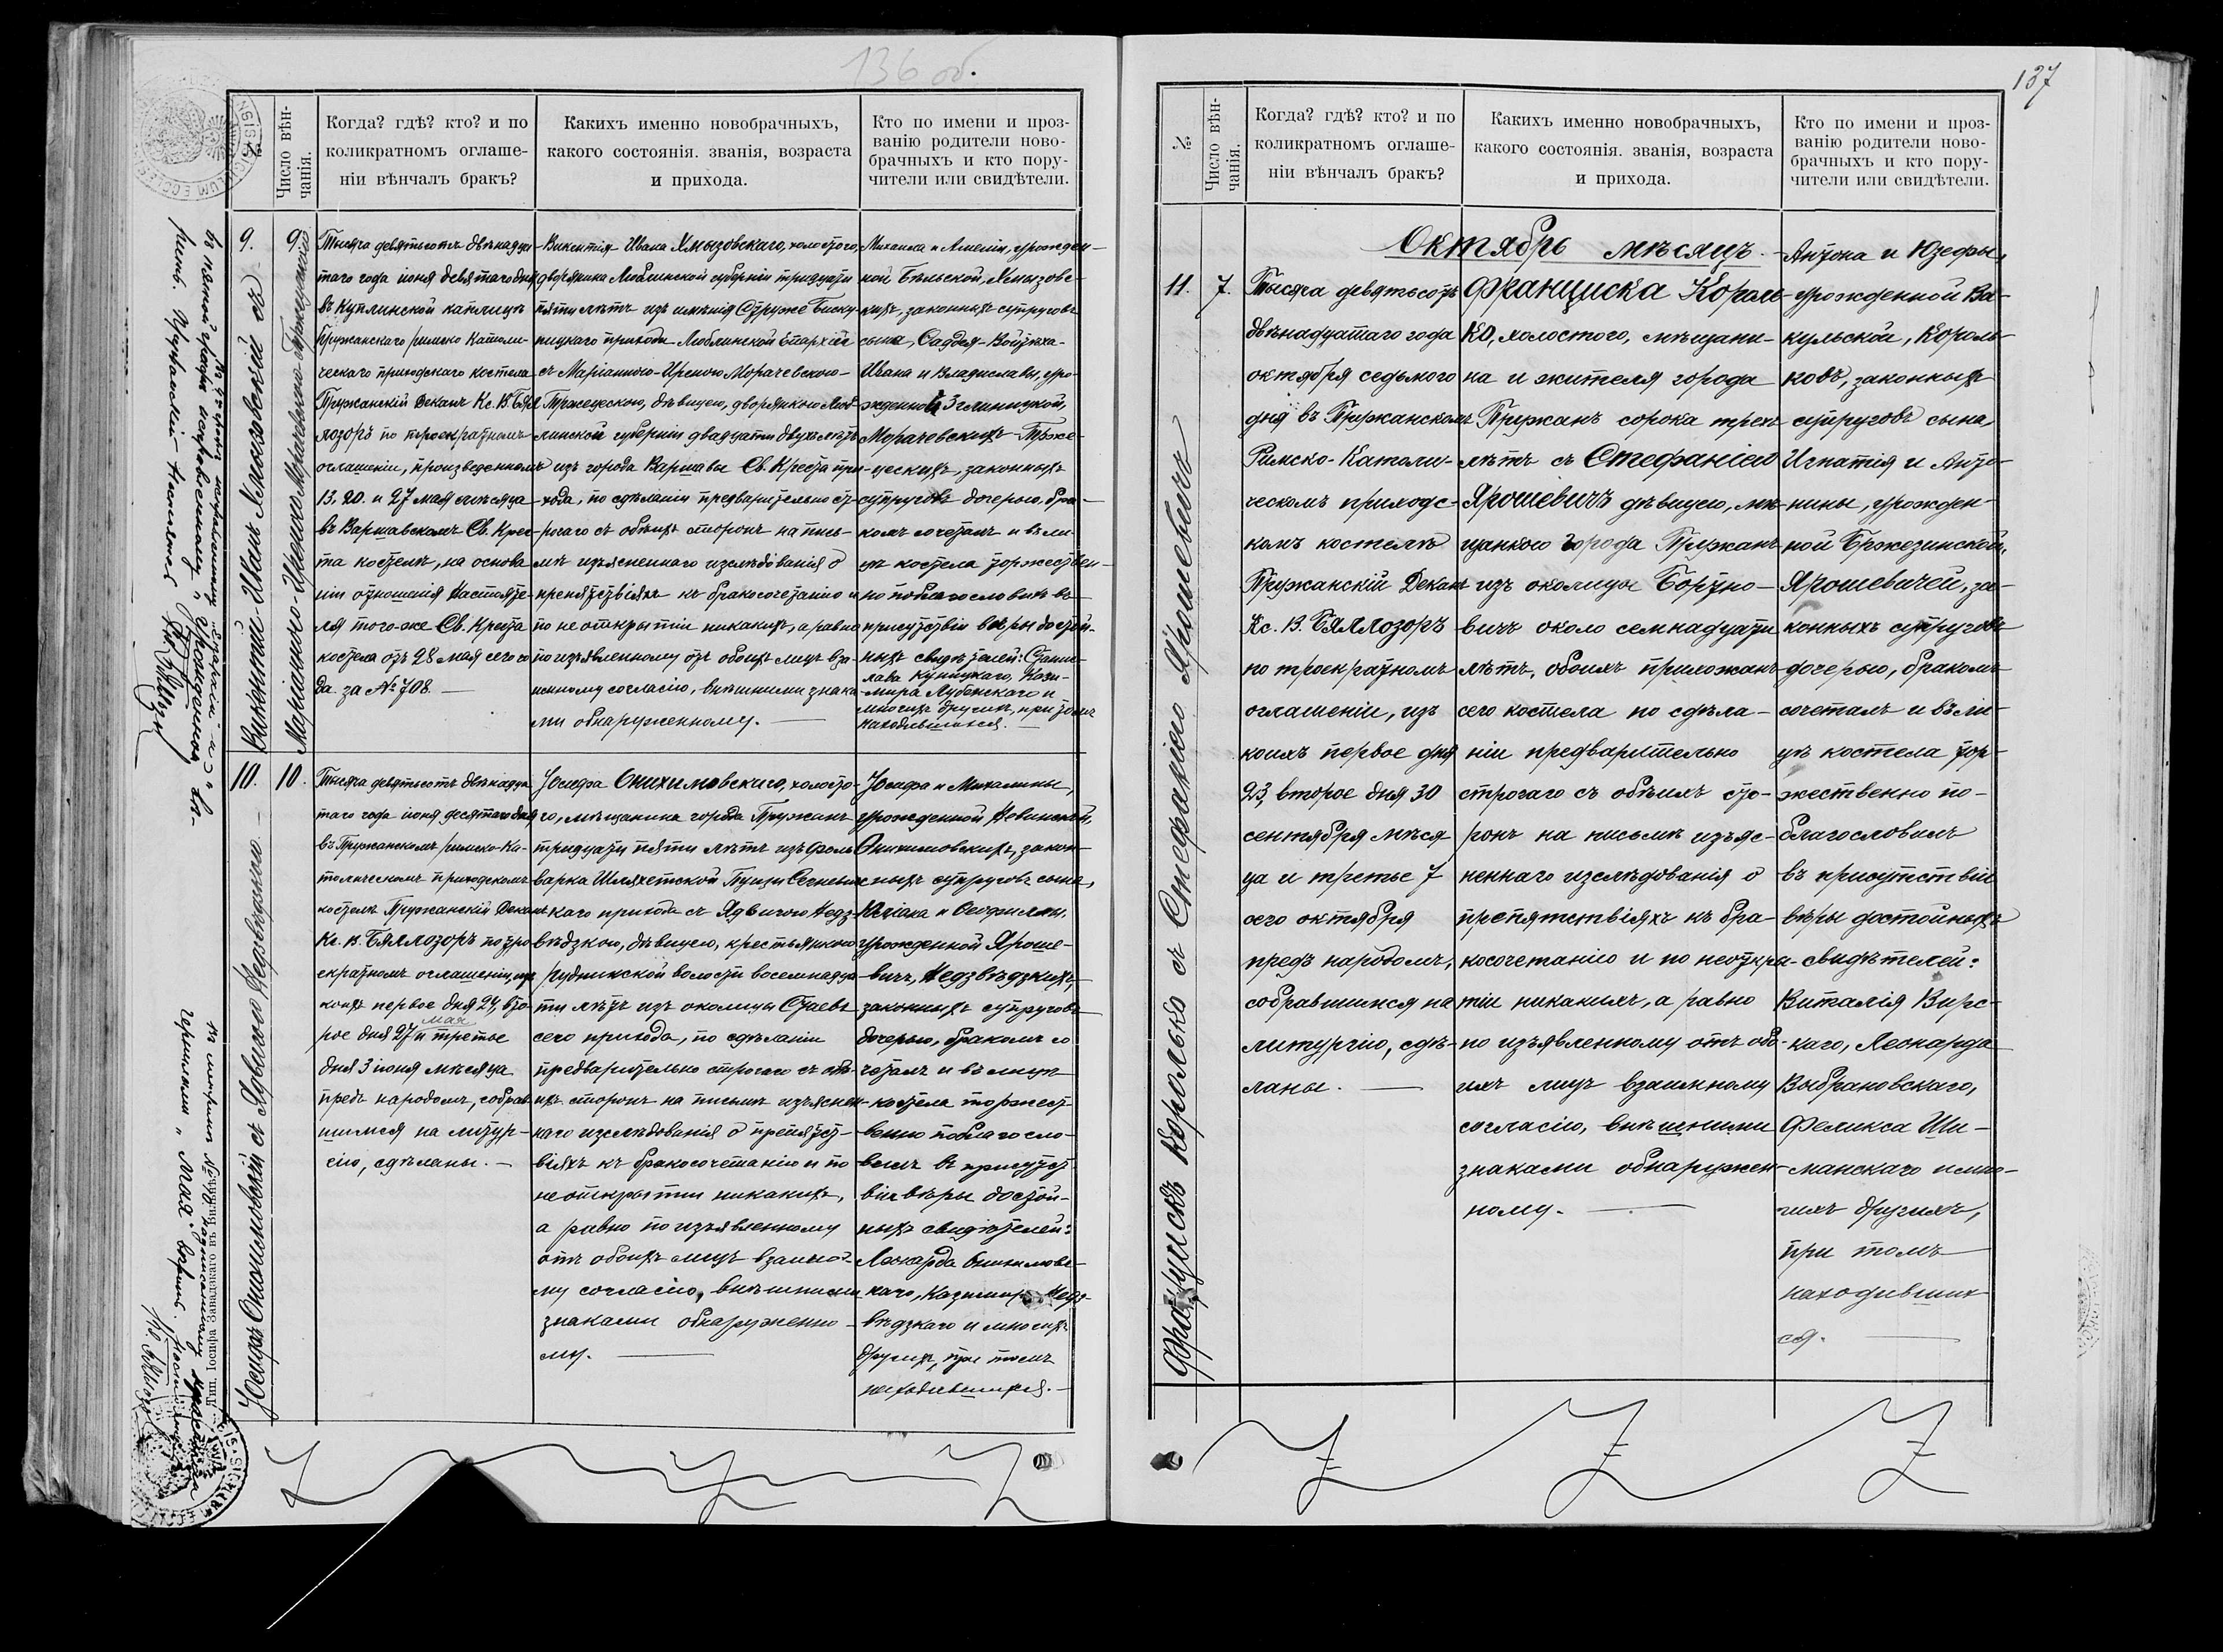 136 об.
№
Число вѣнчанія.
Когда? гдѣ? кто? и по
коликратномъ оглаше-
ніи вѣнчалъ бракъ?
Какихъ именно новобрачныхъ,
какого состоянія. званія, возраста
и прихода.
Кто по имени и проз-
ванію родители ново-
брачныхъ и кто пору-
чители или свидѣтели.
9.
9.
Викентій Иванъ Хмызовскій съ
Маріанною-Иреною Морачевскою-Тржецескою
Тысяча девятьсотъ двѣнадца-
таго года іюня девятаго дня
въ Куплинской каплицѣ
Пружанскаго римско Католи-
ческаго приходскаго костела
Пружанскій Деканъ Кс. В. Бял-
лозоръ по троекратномъ
оглашеніи, произведенномъ
13, 20. и 27 мая мѣсяца
въ Варшавскомъ Св. Крес-
та костелѣ, на основа-
ніи отношенія Настояте-
ля того-же Св. Креста
костела отъ 28 мая сего го-
да за № 708. —
Викентія-Ивана Хмызовскаго, холостого,
дворянина Люблинской губерніи тридцати
пяти лѣтъ изъ имѣнія Струже Биску-
пицкаго прихода Люблинской Епархіи
съ Маріанною-Иреною Морачевскою-
Тржецескою, дѣвицею, дворянкою Люб-
линской губерніи двадцати двухъ лѣтъ
изъ города Варшавы Св. Креста при-
хода, по сдѣланіи предварительно ст-
рогаго съ обѣихъ сторонъ на пись-
мѣ изъясненнаго изслѣдованія о
препятствіяхъ къ бракосочетанію и
по не открытіи никакихъ, а равно
по изъявленному отъ обоихъ лицъ вза-
имному согласію, внѣшними знака-
ми обнаруженному. —
Михаила и Амеліи, урожден-
ной Бѣльской, Хмызовс-
кихъ, законныхъ супруговъ
сына, Фаддея-Войцѣха-
Ивана и Владиславы, уро-
жденной Зглиницкой,
Морачевскихъ-Трже-
цескихъ, законныхъ
супруговъ дочерью, бра-
комъ сочеталъ и въ ли-
цѣ костела торжествен-
но поблагословилъ въ
присутствіи вѣры достой-
ныхъ свидѣтелей: Станис-
лава Куницкаго, Кази-
мира Лубенскаго и
многихъ другихъ, при томъ
находившихся. —
10.
10.
Іосифъ Онихимовскій съ Ядвигою Недзвѣдзкою. —
Тысяча девятьсотъ двѣнадца-
таго года іюня десятаго дня
въ Пружанскомъ римско-Ка-
толическомъ приходскомъ
костелѣ Пружанскій Деканъ
Кс. В. Бяллозоръ по тро-
екратномъ оглашеніи, изъ
коихъ первое дня 24, вто-
рое дня 27 мая и третье
дня 3 іюня мѣсяца
предъ народомъ, собрав-
шимся на литур-
гію, сдѣланы. —
Іосифа Онихимовскаго, холосто-
го, мѣщанина города Пружанъ
тридцати пяти лѣтъ изъ фоль-
варка Шляхетской Пущи Сегневич-
скаго прихода съ Ядвигою Недз-
вѣдзкою, дѣвицею, крестьянкою
рудникской волости восемнадца-
ти лѣтъ изъ околицы Стаевъ
сего прихода, по сдѣланіи
предварительно строгаго съ обѣ-
ихъ сторонъ на письмѣ изъяснен-
наго изслѣдованія о препятст-
віяхъ къ бракосочетанію и по
не открытіи никакихъ,
а равно по изъявленному
отъ обоихъ лицъ взаимно-
му согласію, внѣшними
знаками обнаруженно-
му. —
Іосифа и Михалины,
урожденной Левинской,
Онихимовскихъ, закон-
ныхъ супруговъ сына,
и Ѳеофилы,
урожденной Яроше-
вичъ, Недзвѣдзкихъ,
законныхъ супруговъ
дочерью, бракомъ со-
четалъ и въ лицѣ
костела торжест-
венно поблагосло-
вилъ въ присутст-
віи вѣры достой-
ныхъ свидѣтелей:
Леонарда Онихимовс-
каго, Казимира Недз-
вѣдзкаго и многихъ
другихъ, при томъ
находившихся. —
Тип. Іосифа Завадзкаго въ Вильнѣ.
137
№
Число вѣнчанія.
Когда? гдѣ? кто? и по
коликратномъ оглаше-
ніи вѣнчалъ бракъ?
Какихъ именно новобрачныхъ,
какого состоянія. званія, возраста
и прихода.
Кто по имени и проз-
ванію родители ново-
брачныхъ и кто пору-
чители или свидѣтели.
Октябрь мѣсяцъ.
11.
7.
Францискъ Королько съ Стефаніею Ярошевичъ
Тысяча девятьсотъ
двѣнадцатаго года
октября седьмого
дня въ Пружанскомъ
Римско-Католи-
ческомъ приходс-
комъ костелѣ
Пружанскій Деканъ
Кс. В. Бяллозоръ
по троекратномъ
оглашеніи, изъ
коихъ первое дня
23, второе дня 30
сентября мѣся-
ца и третье 7
сего октября
предъ народомъ,
собравшимся на
литургію, сдѣ-
ланы. —
Франциска Король-
ко, холостого, мѣщани-
на и жителя города
Пружанъ сорока трехъ
лѣтъ съ Стефаніею
Ярошевичъ дѣвицею, мѣ-
щанкою города Пружанъ
изъ околицы Бортно-
вичъ около семнадцати
лѣтъ, обоихъ прихожанъ
сего костела по сдѣла-
ніи предварительно
строгаго съ обѣихъ сто-
ронъ на письмѣ изъяс-
неннаго изслѣдованія о
препятствіяхъ къ бра-
косочетанію и по неоткры-
тіи никакихъ, а равно
по изъявленному отъ обо-
ихъ лицъ взаимному
согласію, внѣшними
знаками обнаружен-
ному. —
Антона и Юзефы,
урожденной Ва-
кульской, Король-
ковъ, законныхъ
супруговъ сына,
Игнатія и Анто-
нины, урожден-
ной Бржезинской,
Ярошевичей, за-
конныхъ супруговъ
дочерью, бракомъ
сочеталъ и въ ли-
цѣ костела тор-
жественно по-
благословилъ
въ присутствіи
вѣры достойныхъ
свидѣтелей:
Виталія Вирс-
каго, Леонарда
Выбрановскаго,
Феликса Ши-
манскаго и мно-
гихъ другихъ,
при томъ
находивших-
ся. —